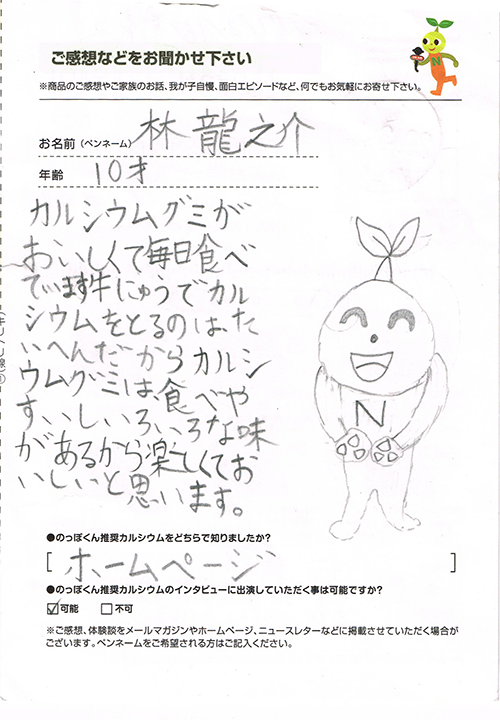 ご感想などをお聞かせ下さい
※商品のご感想やご家族のお話、我が子自慢、面白エピソードなど、何でもお気軽にお寄せ下さい。
お名前(ペンネーム) 林 龍之介
年齢 10才
カルシウムグミが
おいしくて毎日食べ
ています牛にゅうでカル
シウムをとるのは、た
いへんだからカルシ
ウムグミは、食べや
すいしいろいろな味
があるから楽しくてお
いしいと思います。
N
●のっぽくん推奨カルシウムをどちらで知りましたか?
[ホームページ]
●のっぽくん推奨カルシウムのインタビューに出演していただく事は可能ですか?
☑可能 □不可
※ご感想、体験談をメールマガジンやホームページ、ニュースレターなどに掲載させていただく場合が
ございます。ペンネームをご希望される方はご記入ください。